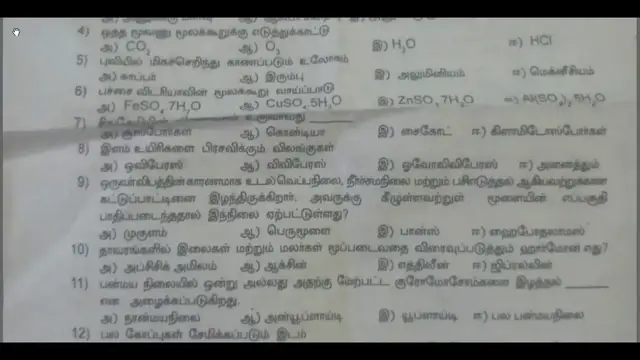 4) ஒத்த மூவணு மூலக்கூறுக்கு எடுத்துக்காட்டு
அ) CO₂ ஆ) O₃ இ) H₂O ஈ) HCl
5) புவியில் மிகச்செறிந்து காணப்படும் உலோகம்
அ) காப்பர் ஆ) இரும்பு இ) அலுமினியம் ஈ) மெக்னீசியம்
6) பச்சை விட்ரியாலின் மூலக்கூறு வாய்ப்பாடு
அ) FeSO₄ 7H₂O ஆ) CuSO₄ 5H₂O இ) ZnSO₄ 7H₂O
7) உருவாவது ______
ஆ) கொண்டியா இ) சைகோட் ஈ) கிளாமிடோஸ்போர்கள்
8) இளம் உயிரிகளை பிரசவிக்கும் விலங்குகள்
அ) ஓவிபேரஸ் ஆ) விவிபேரஸ் இ) ஓவோவிவிபேரஸ் ஈ) அனைத்தும்
9) ஒருவர்விபத்தின்காரணமாக உடல்வெப்பநிலை, நீர்ச்சமநிலை மற்றும் பசிஎடுத்தல் ஆகியவற்றுக்கான
கட்டுப்பாட்டினை இழந்திருக்கிறார். அவருக்கு கீழுள்ளவற்றுள் மூளையின் எப்பகுதி
பாதிப்படைந்ததால் இந்நிலை ஏற்பட்டுள்ளது?
அ) முகுளம் ஆ) பெருமூளை இ) பான்ஸ் ஈ) ஹைபோதலாமஸ்
10) தாவரங்களில் இலைகள் மற்றும் மலர்கள் மூப்படைவதை விரைவுப்படுத்தும் ஹார்மோன் எது?
அ) அப்சிசிக் அமிலம் ஆ) ஆக்சின் இ) எத்திலீன் ஈ) ஜிப்ரல்லின்
11) பன்மய நிலையில் ஒன்று அல்லது அதற்கு மேற்பட்ட குரோமோசோம்களை இழத்தல் ______
என அழைக்கப்படுகிறது.
அ) நான்மயநிலை ஆ) அன்யூப்ளாய்டி இ) யூப்ளாய்டி ஈ) பல பன்மயநிலை
12) பல கோப்புகள் சேமிக்கப்படும் இடம்